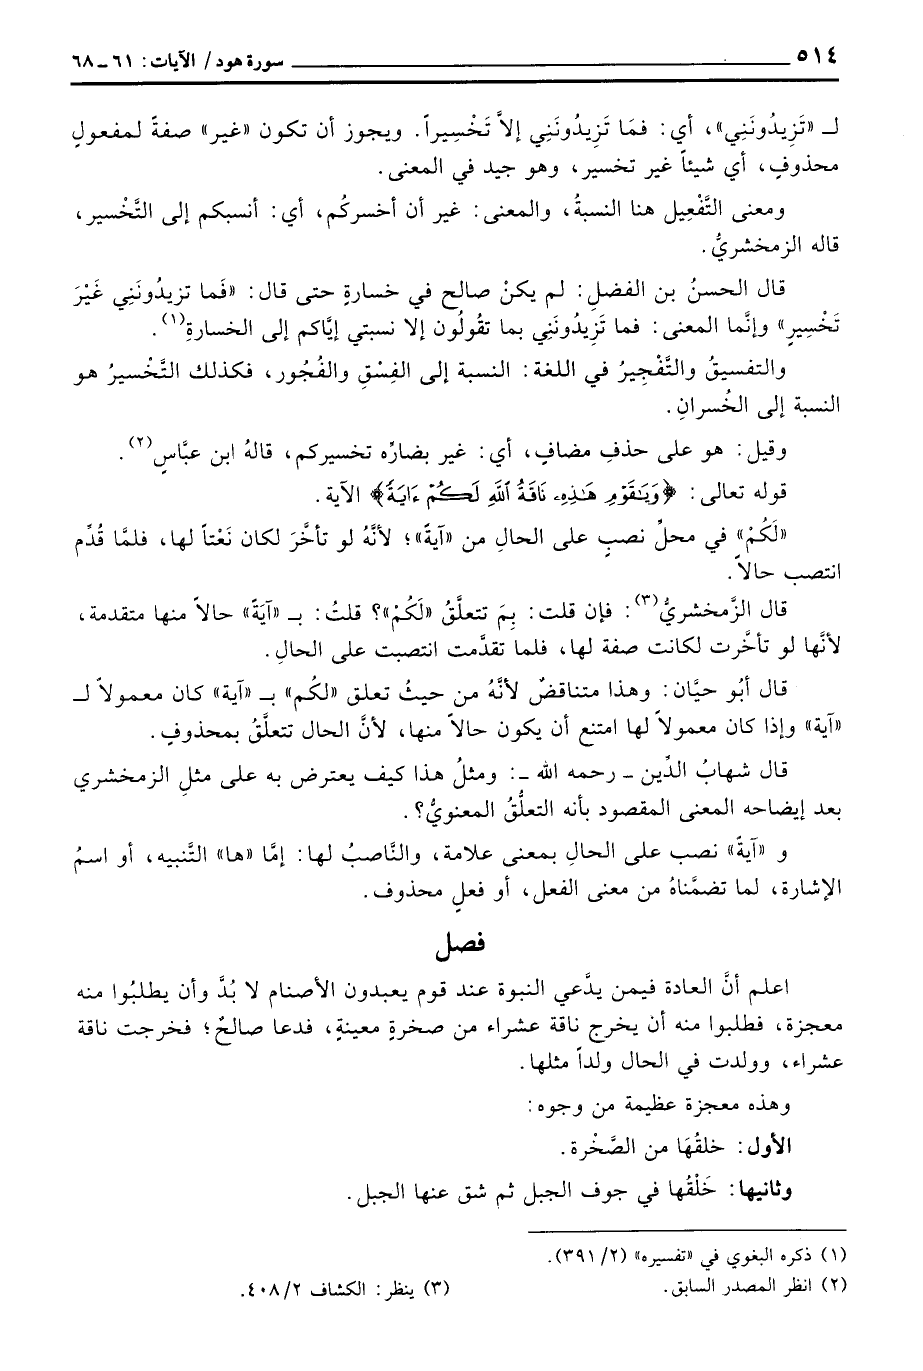 ٥١٤ سورة هود / الآيات: ٦١ ـ ٦٨
لـ «تَزِيدُونَنِي»، أي: فمَا تَزِيدُونَنِي إلاَّ تَخْسِيراً. ويجوز أن تكون «غير» صفةً لمفعولٍ
محذوفٍ، أي شيئاً غير تخسير، وهو جيد في المعنى.
ومعنى التَّفْعِيل هنا النسبةُ، والمعنى: غير أن أخسركُم، أي: أنسبكم إلى التَّخْسير،
قاله الزمخشريُّ.
قال الحسنُ بن الفضلِ: لم يكنْ صالح في خسارةٍ حتى قال: «فَما تزيدُونَنِي غَيْرَ
تَخْسِيرٍ» وإنَّما المعنى: فما تَزِيدُونَنِي بما تقُولُون إلا نسبتي إيَّاكم إلى الخسارةِ(١).
والتفسيقُ والتَّفْجِيرُ في اللغة: النسبة إلى الفِسْقِ والفُجُور، فكذلك التَّخْسيرُ هو
النسبة إلى الخُسرانِ.
وقيل: هو على حذفِ مضافٍ، أي: غير بضارِّه تخسيركم، قالهُ ابن عبَّاسٍ(٢).
قوله تعالى: ﴿وَيَٰقَوْمِ هَٰذِهِۦ نَاقَةُ ٱللَّهِ لَكُمْ ءَايَةً﴾ الآية.
«لَكُمْ» في محلِّ نصبٍ على الحالِ من «آيةً»؛ لأنَّهُ لو تأخَّرَ لكان نَعْتاً لها، فلمَّا قُدِّم
انتصب حالاً.
قال الزَّمخشريُّ(٣): فإن قلت: بِمَ تتعلَّقُ «لَكُمْ»؟ قلتُ: بـ «آيَةً» حالاً منها متقدمة،
لأنَّها لو تأخَّرت لكانت صفة لها، فلما تقدَّمت انتصبت على الحالِ.
قال أبُو حيَّان: وهذا متناقضٌ لأنَّهُ من حيثُ تعلق «لكُم» بـ «آية» كان معمولاً لـ
«آية» وإذا كان معمولاً لها امتنع أن يكون حالاً منها، لأنَّ الحال تتعلَّقُ بمحذوفٍ.
قال شهابُ الدِّين ـ رحمه الله ـ: ومثلُ هذا كيف يعترض به على مثلِ الزمخشري
بعد إيضاحه المعنى المقصود بأنه التعلُّقُ المعنويُّ؟.
و «آيةً» نصب على الحالِ بمعنى علامة، والنَّاصبُ لها: إمَّا «ها» التَّنبيه، أو اسمُ
الإشارة، لما تضمَّناهُ من معنى الفعل، أو فعلٍ محذوف.
فصل
اعلم أنَّ العادة فيمن يدَّعي النبوة عند قوم يعبدون الأصنام لا بُدَّ وأن يطلبُوا منه
معجزة، فطلبوا منه أن يخرج ناقة عشراء من صخرةٍ معينةٍ، فدعا صالحٌ؛ فخرجت ناقة
عشراء، وولدت في الحال ولداً مثلها.
وهذه معجزة عظيمة من وجوه:
الأول: خلقُهَا من الصَّخْرة.
وثانيها: خَلْقُها في جوف الجبل ثم شق عنها الجبل.
(١) ذكره البغوي في «تفسيره» (٢/ ٣٩١).
(٢) انظر المصدر السابق. (٣) ينظر: الكشاف ٢/ ٤٠٨.